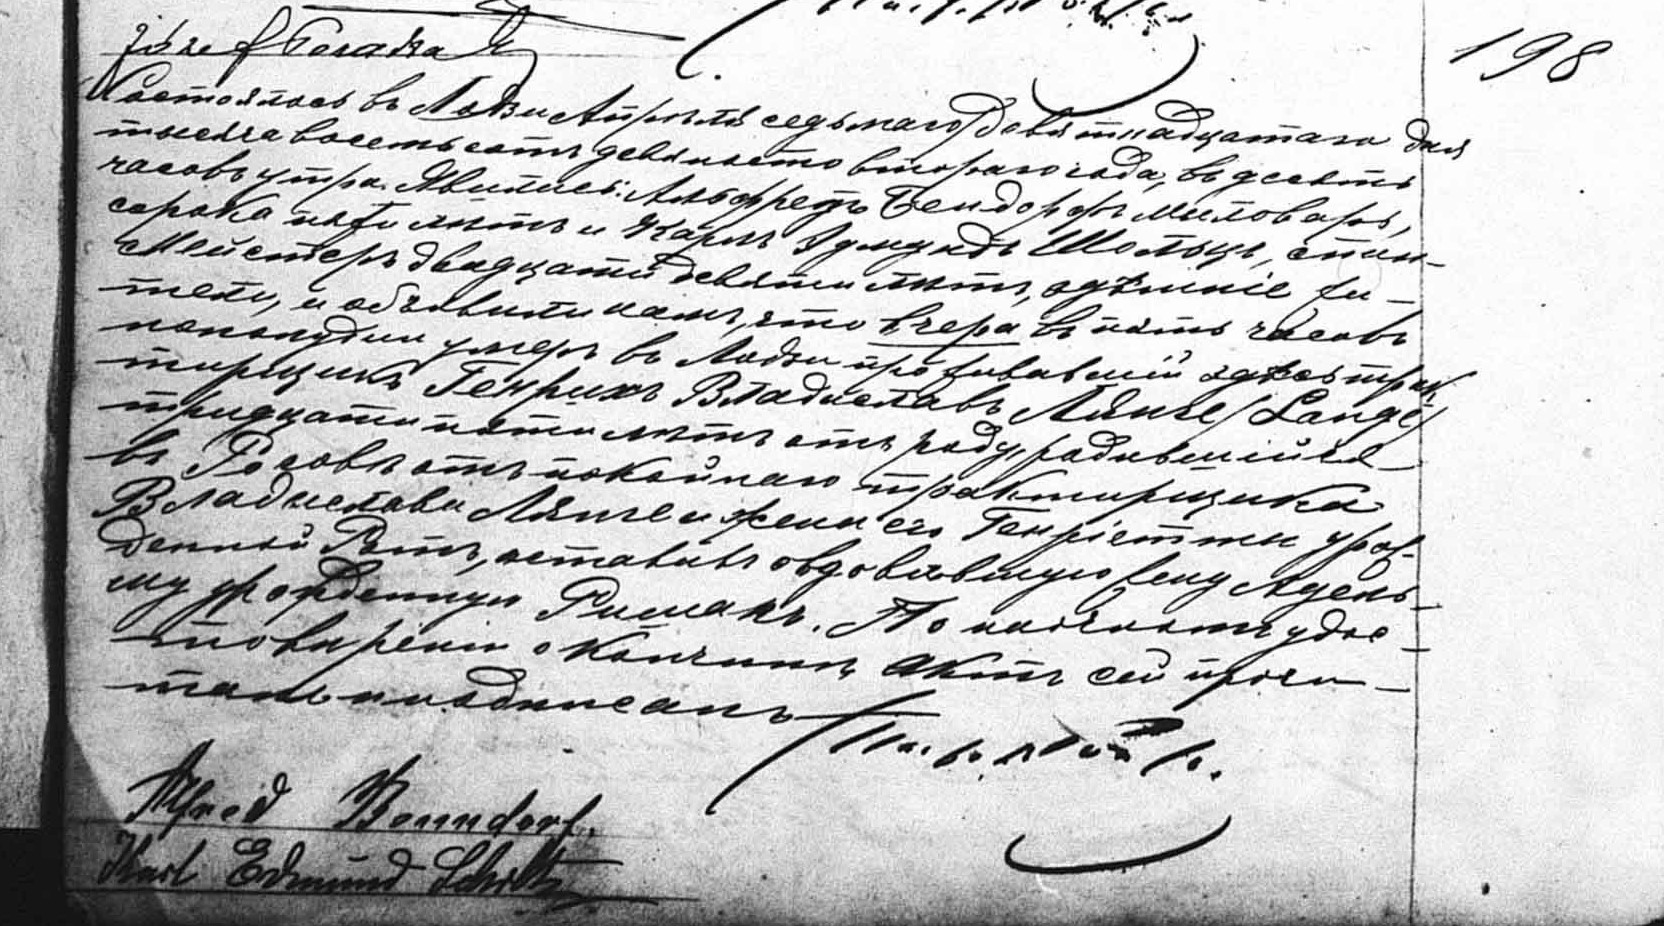 198
Józef
Состоялось въ Лодзи Апрѣля седьмаго/девятнадцатаго дня
тысяча восемьсотъ девяносто втораго года, въ десять
часовъ утра. Явились: Альфредъ Бендорфъ мыловаръ,
сорока пяти лѣтъ и Карлъ Эдмундъ Шольцъ, спин-
мейстеръ двадцати девяти лѣтъ, здѣшніе жи-
тели, и объявили намъ, что вчера въ пять часовъ
пополудни умеръ въ Лодзи проживавшій здѣсь трак-
тирщикъ Генрихъ Владиславъ Лянге /Lange/
тридцати пяти лѣтъ отъ роду, родившійся
въ отъ покойнаго трактирщика
Владислава Лянге и жены его Генріетты урож-
денной Ротъ, оставивъ овдовѣвшую жену Адель-
му урожденную . По наочномъ удос-
товѣреніи о кончинѣ, актъ сей прочи-
танъ и подписанъ
Alfred Benndorf.
Karl Edmund Scholtz